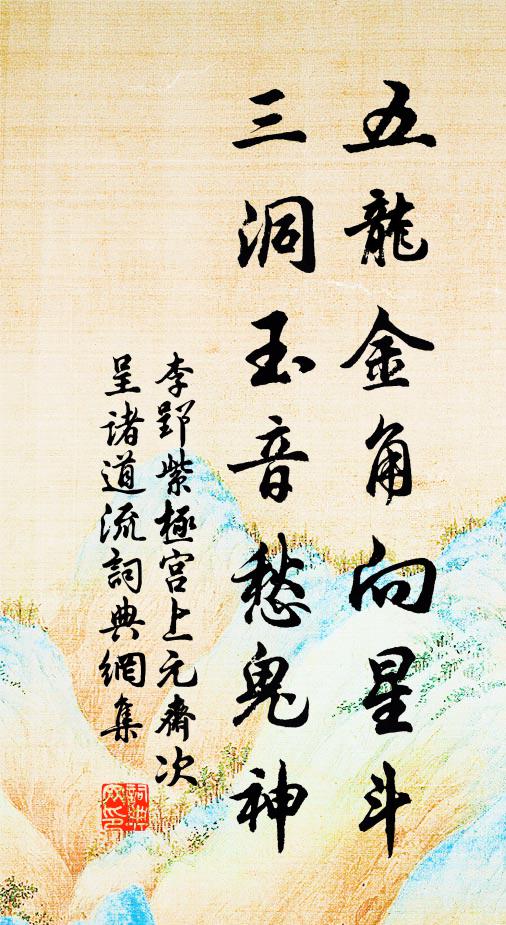 五龍金角向星斗
三洞玉音愁鬼神
李郢紫極宮上元齋次
呈諸道流詞典網集